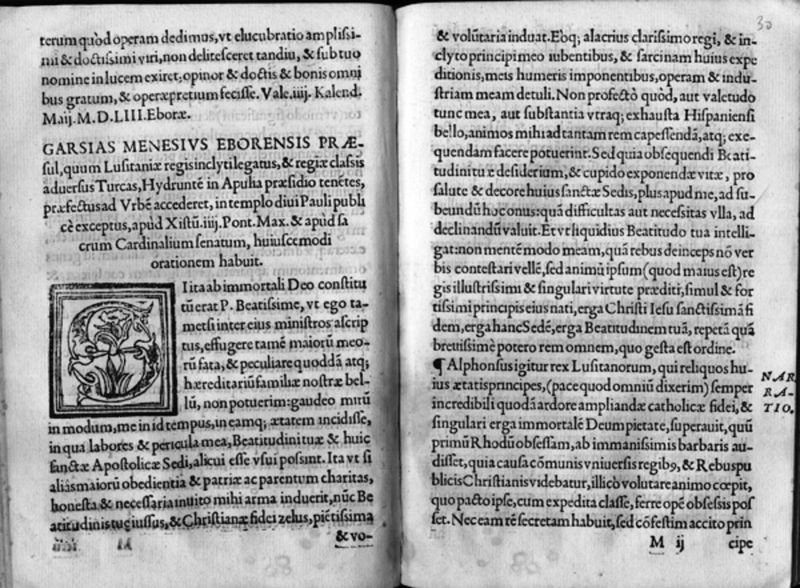 terum quòd operam dedimus, vt elucubratio amplissi-
mi & doctissimi viri, non delitesceret tandiu, & sub tuo
nomine in lucem exiret, opinor & doctis & bonis omni
bus gratum, & operæpretium fecisse. Vale. iiij. Kalend.
Maij. M. D. LIII. Eboræ.
GARSIAS MENESIVS EBORENSIS PRÆ-
sul, quum Lusitaniæ regis inclyti legatus, & regiæ classis
aduersus Turcas, Hydruntē in Apulia præsidio tenētes,
præfectus ad Vrbē accederet, in templo diui Pauli publi
cè exceptus, apùd Xistū. iiij. Pont. Max. & apùd sa
crum Cardinalium senatum, huiuscemodi
orationem habuit.
SI ita ab immortali Deo constitu
tū erat P. Beatissime, vt ego ta-
metsi inter eius ministros ascrip
tus, effugere tamē maiorū meo-
rū fata, & peculiare quoddā atq;
hæreditariū familiæ nostræ bel-
lū, non potuerim: gaudeo mirū
in modum, me in id tempus, in eamq; ætatem incidisse,
in qua labores & pericula mea, Beatitudini tuæ & huic
sanctæ Apostolicæ Sedi, alicui esse vsui possint. Ita vt si
alias maiorū obedientia & patriæ ac parentum charitas,
honesta & necessaria inuito mihi arma induerit, nūc Be
atitudinis tuę iussus, & Christianæ fidei zelus, piētissima
M & vo-
30
& volūtaria induat. Eoq; alacrius clarissimo regi, & in-
clyto principi meo iubentibus, & sarcinam huius expe
ditionis, meis humeris imponentibus, operam & indu-
striam meam detuli. Non profectò quòd, aut valetudo
tunc mea, aut substantia vtraq; exhausta Hispaniensi
bello, animos mihi ad tantam rem capessendā, atq; exe-
quendam facere potuerint. Sed quia obsequendi Beati-
tudini tuæ desiderium, & cupido exponendæ vitæ, pro
salute & decore huius sanctæ Sedis, plus apud me, ad su-
beundū hoc onus: quā difficultas aut necessitas vlla, ad
declinandū valuit. Et vt liquidius Beatitudo tua intelli-
gat: non mentē modo meam, quā rebus deinceps nō ver
bis contestari vellē, sed animū ipsum (quod maius est) re
gis illustrissimi & singulari virtute præditi, simul & for
tissimi principis eius nati, erga Christi Iesu sanctissimā fi
dem, erga hanc Sedē, erga Beatitudinem tuā, repetā quā
breuissimè potero rem omnem, quo gesta est ordine.
¶ Alphonsus igitur rex Lusitanorum, qui reliquos hu-
ius ætatis principes, (pace quod omniū dixerim) semper
incredibili quodā ardore ampliandæ catholicæ fidei, &
singulari erga immortalē Deum pietate, superauit, quū
primū Rhodū obsessam, ab immanissimis barbaris au-
disset, quia causa cōmunis vniuersis regibꝰ, & Rebuspu
blicis Christianis videbatur, illicò volutare animo cœpit,
quo pacto ipse, cum expedita classe, ferre opē obsessis pos
set. Nec eam rē secretam habuit, sed cōfestim accito prin
M ij cipe
NAR
RA-
TIO.